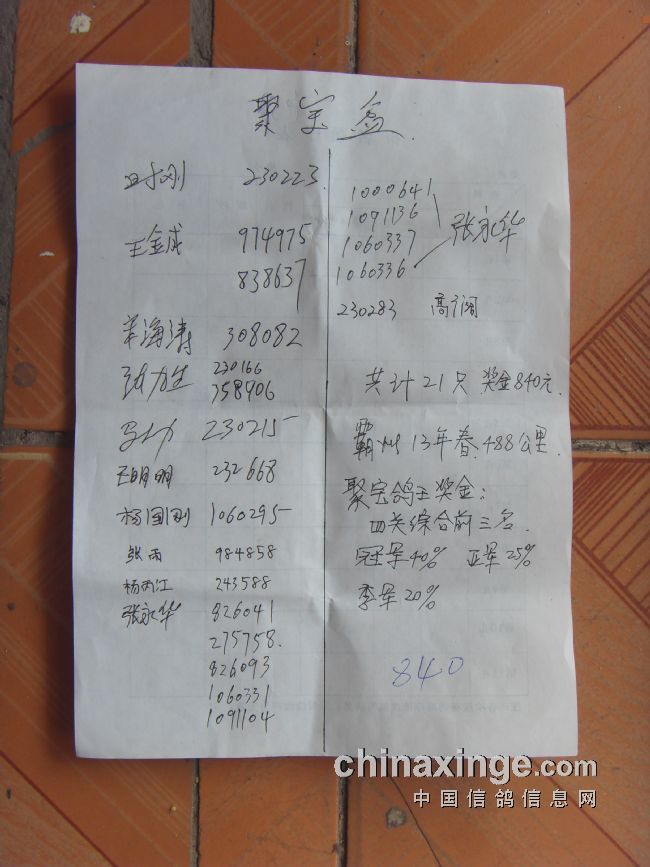 聚宝盆
田刚 230223
王金成 974975
838637
羊海涛 308082
张力生 230166
358906
马 230215
王明明 232668
杨国刚 1060295
张雨 984858
杨丙江 243588
张永华 826041
275758
826093
1060331
1091104
1000641
1091136
1060337 张永华
1060336
230283 高润
共计21只 奖金840元.
霸州13年春488公里.
聚宝鸽王奖金:
四关综合前三名.
冠军40% 亚军25%
季军20%
840
chinaxinge.com
中国信鸽信息网